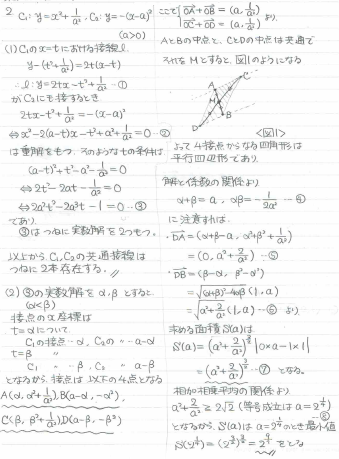 2 C₁: y=x²+1/a², C₂: y=-(x-a)²
(a>0)
(1) C₁のx=tにおける接線ℓ
y-(t²+1/a²)=2t(x-t)
∴ℓ: y=2tx-t²+1/a² …①
がC₂にも接するとき
2tx-t²+1/a²=-(x-a)²
⇔x²-2(a-t)x-t²+a²+1/a²=0 …②
は重解をもつ。そのようなtの条件は
(a-t)²+t²-a²-1/a²=0
⇔2t²-2at-1/a²=0
⇔2a²t²-2a³t-1=0 …③
であり
③はつねに実数解を2つもつ。
以上からC₁,C₂の共通接線は
つねに2本存在する。//
(2) ③の実数解をα,βとすると
(α<β)
接点のx座標は
t=αについて
C₁の接点…α, C₂の〃…a-α
t=β 〃
C₁ 〃 …β, C₂ 〃 a-β
となるから、接点は以下の4点となる
A(α,α²+1/a²),B(a-α,-α²),
C(β,β²+1/a²),D(a-β,-β²)
ここで OA+OB=(a,1/a²)
OC+OD=(a,1/a²) より
AとBの中点と、CとDの中点は共通で
それをMとすると、図のようになる
A
C
M
B
D
<図>
よって4接点からなる四角形は
平行四辺形であり
解と係数の関係より
α+β=a, αβ=-1/2a² …④
に注意すれば
・DA=(α+β-a, α²+β²+1/a²)
=(0, a²+2/a²) …⑤
・DB=(β-α, β²-α²)
=√(α+β)²-4αβ (1,a)
=√a²+2/a² (1,a) …⑥ より
求める面積S(a)は
S(a)=(a²+2/a²)^3/2 |0×a-1×1|
=(a²+2/a²)^3/2 …⑦ となる。
相加相乗平均の関係より
a²+2/a²≧2√2 (等号成立は a=2^1/4)
…⑧
となるから、S(a)はa=2^1/4のとき最小値
S(2^1/4)=(2^3/2)^3/2=2^9/4をとる